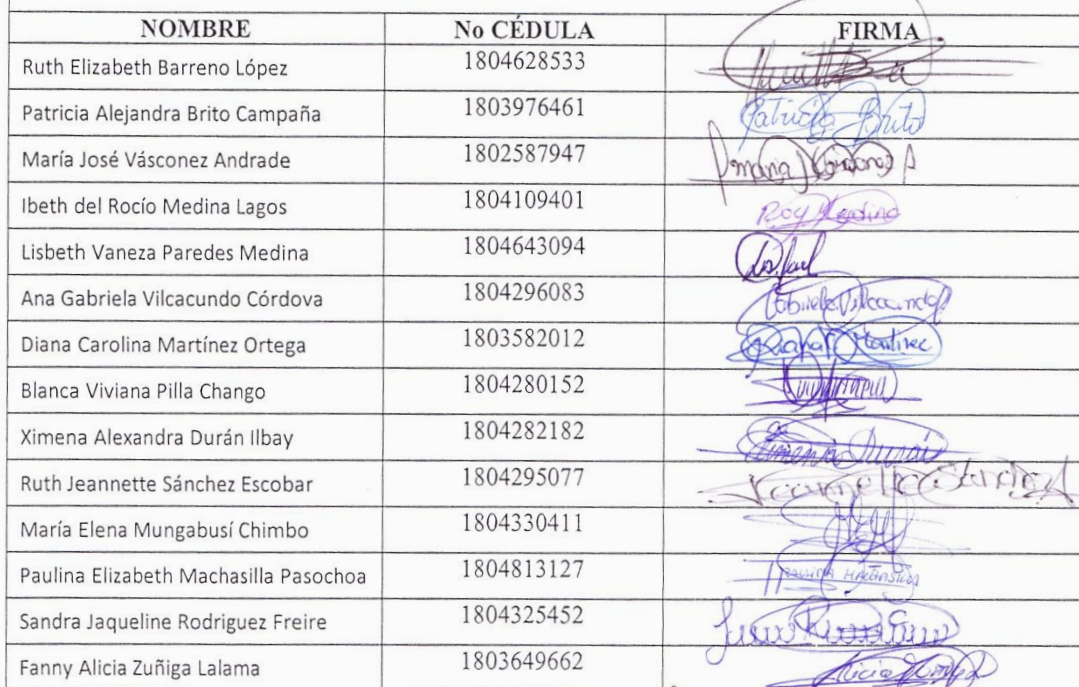 NOMBRE No CÉDULA FIRMA
Ruth Elizabeth Barreno López 1804628533
Patricia Alejandra Brito Campaña 1803976461 Patricia Brito
María José Vásconez Andrade 1802587947
Ibeth del Rocío Medina Lagos 1804109401 Medina
Lisbeth Vaneza Paredes Medina 1804643094
Ana Gabriela Vilcacundo Córdova 1804296083 Gabriela Vilcacundo
Diana Carolina Martínez Ortega 1803582012 Diana Martinez
Blanca Viviana Pilla Chango 1804280152
Ximena Alexandra Durán Ilbay 1804282182 Ximena Durán
Ruth Jeannette Sánchez Escobar 1804295077
María Elena Mungabusí Chimbo 1804330411
Paulina Elizabeth Machasilla Pasochoa 1804813127 PAULINA MACHASILLA
Sandra Jaqueline Rodriguez Freire 1804325452
Fanny Alicia Zuñiga Lalama 1803649662 Alicia